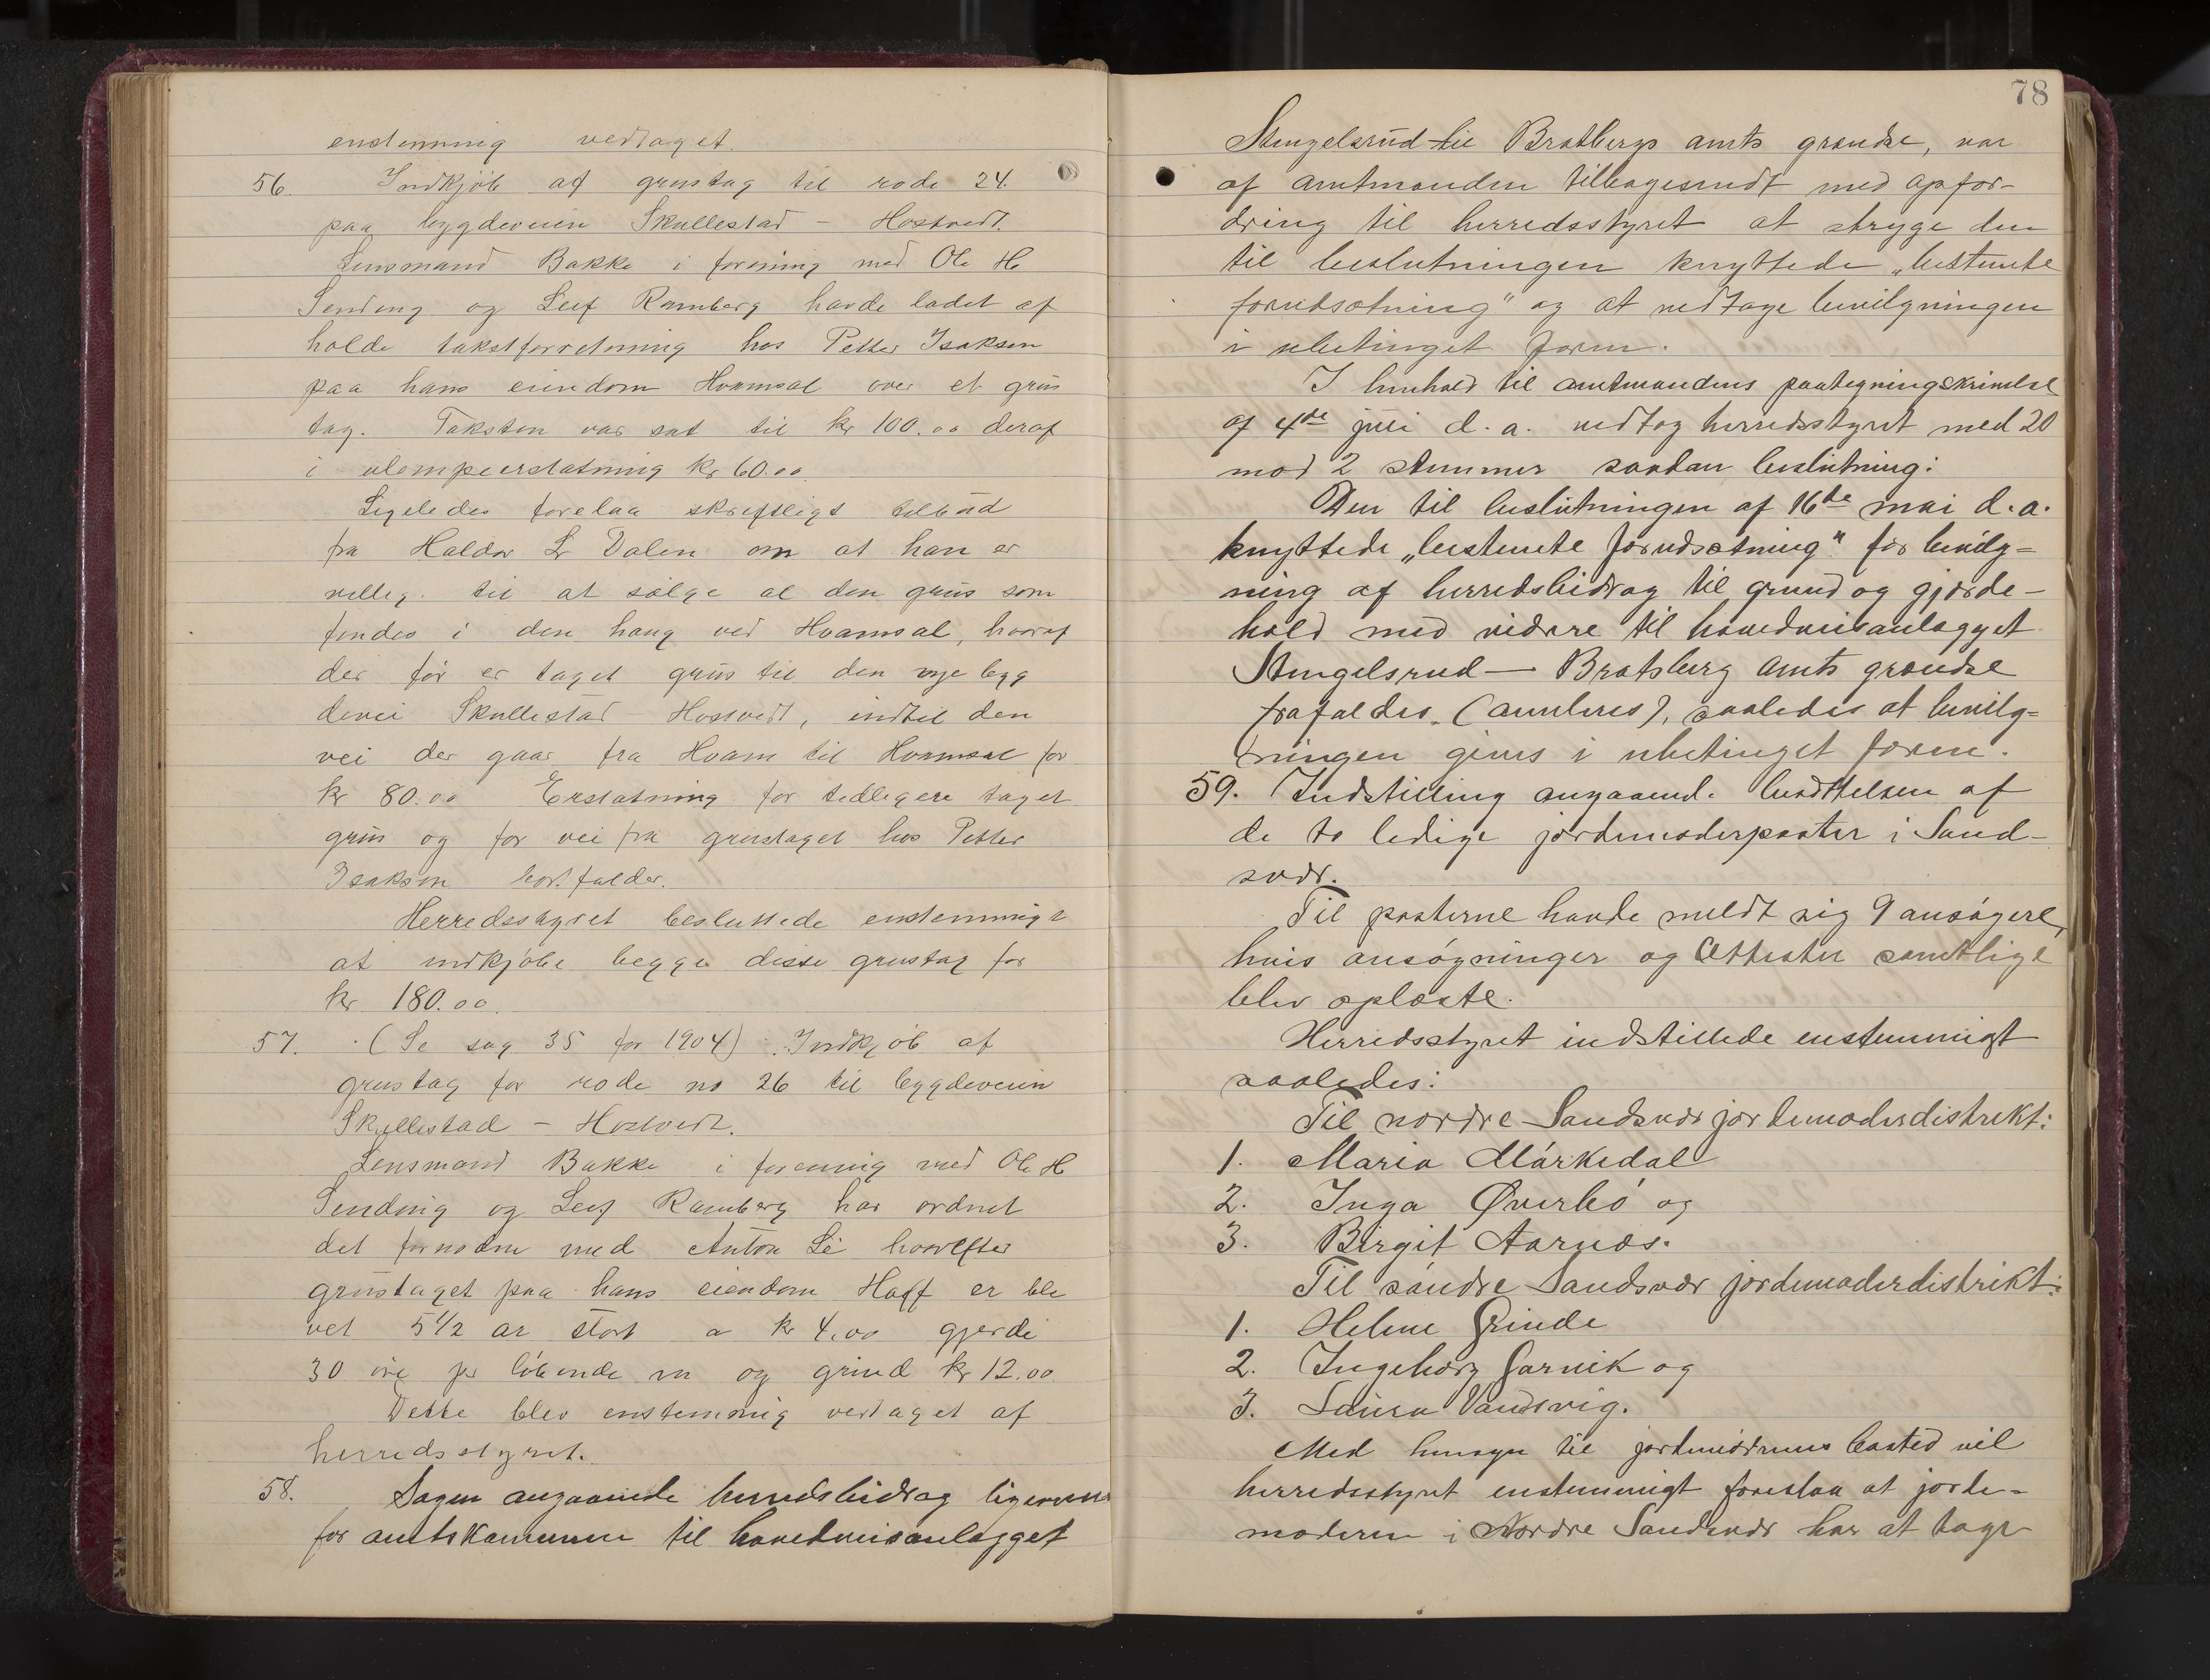 enstemmig vedtaget.
56. Indkjöb af grustag til rode 24.
paa bygdeveien Skullestad - Hostvedt.
Lensmand Bakke i forening med Ole H
Sending og Leif Ramberg havde ladet af
holde takstforretning hos Petter Isaksen
paa hans eiendom Hvamsal over et grus
tag. Taksten var sat til kr 100.00 deraf
i ulempeerstatning kr 60.00.
Ligeledes forelaa skriftligt tilbud
fra Haldor Dalen om at han er
villig til at sælge al den grus som
findes i den haug ved Hvamsal, hvoraf
der för er taget grus til den nye byg
devei Skullestad - Hostvedt, indtil den
vei der gaar fra Hvam til Hvamsal for
kr 80.00 Erstatning for tidligere taget
grus og for vei fra grustaget hos Petter
Isaksen bortfalder.
Herredsstyret besluttede enstemmigt
at indkjöbe begge disse grustag for
kr 180.00.
57. (Se sag 35 for 1904). Indkjöb af
grustag for rode no 26 til bygdeveien
Skullestad - Hostvedt.
Lensmand Bakke i forening med Ole H
Sending og Leif Ramberg har ordnet
det fornödne med Anton Li hvorefter
grustaget paa hans eiendom Hoff er ble
vet 5 1/2 ar stort a kr 4.00 gjerde
30 öre pr löbende m og grind kr 12.00
Dette blev enstemmig vedtaget af
herredsstyret.
58. Sagen angaaende herredsbidrag ligeoverfor
for amtskommunen til hovedveisanlægget
78
Stengelsrud til Bratbergs amts grændse, var
af amtmanden tilbagesendt med opfor-
dring til herredsstyret at stryge den
til beslutningen knyttede „bestemte
forudsætning" og at vedtage bevilgningen
i ubetinget form.
I henhold til amtmandens paategningsskrivelse
af 4de juli d. a. vedtog herredsstyret med 20
mod 2 stemmer saadan beslutning:
Den til beslutningen af 16de mai d. a.
knyttede „bestemte forudsætning" for bevilg-
ning af herredsbidrag til grund og gjærde-
hold med videre til hovedveisanlægget
Stengelsrud - Bratsberg amts grændse
frafaldes (annuleres), saaledes at bevilg-
ningen gives i ubetinget form.
59. Indstilling angaaend. besættelsen af
de to ledige jordemoderposter i Sand-
svær.
Til posterne havde meldt sig 9 ansögere,
hvis ansögninger og Attester samtlige
blev oplæste.
Herredsstyret indstillede enstemmigt
saaledes:
Til nordre Sandsvær jordemoderdistrikt:
1. Maria Mörkedal
2. Inga Øverbö og
3. Birgit Aarnæs.
Til söndre Sandsvær jordemoderdistrikt:
1. Helene Grinde
2. Ingeborg Garvik og
3. Laura Vandsvig.
Med hensyn til jordmödrenes bosted vil
herredsstyret enstemmigt foreslaa at jorde-
moderen i Nordre Sandsvær har at tage